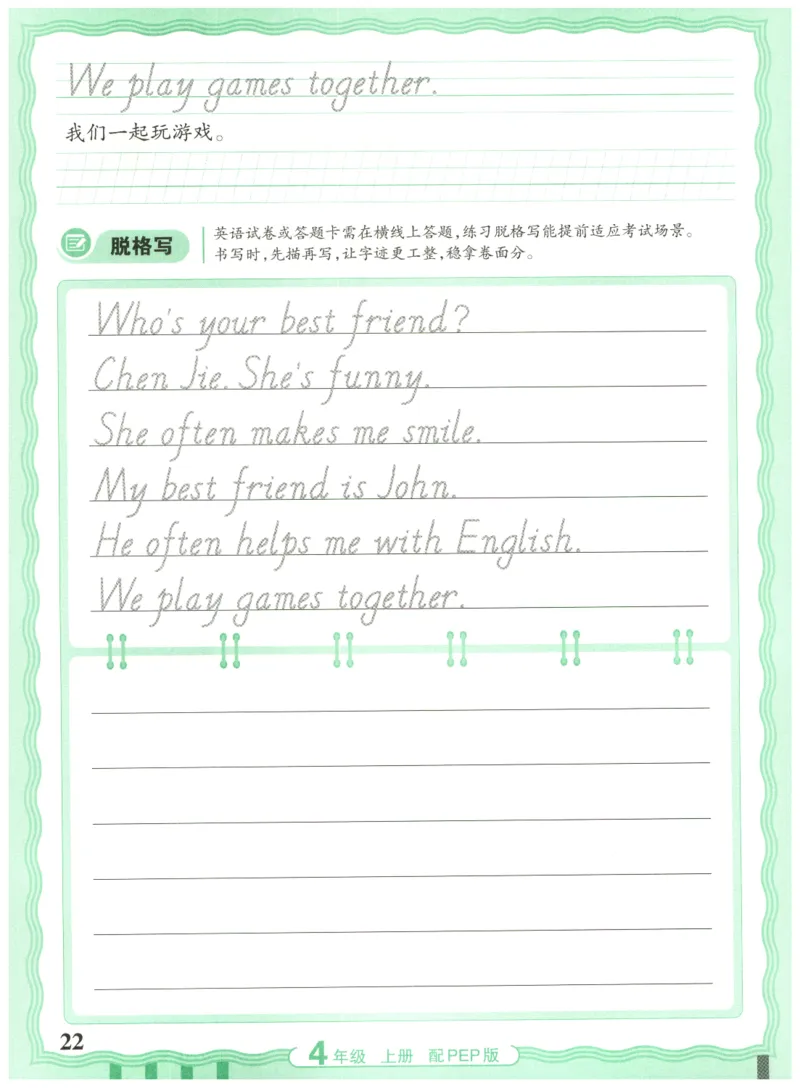 We play games together.
我们一起玩游戏。
脱格写
英语试卷或答题卡需在横线上答题,练习脱格写能提前适应考试场景。
书写时,先描再写,让字迹更工整,稳拿卷面分。
Who's your best friend?
Chen Jie. She's funny.
She often makes me smile.
My best friend is John.
He often helps me with English.
We play games together.
22
4年级 上册 配PEP版